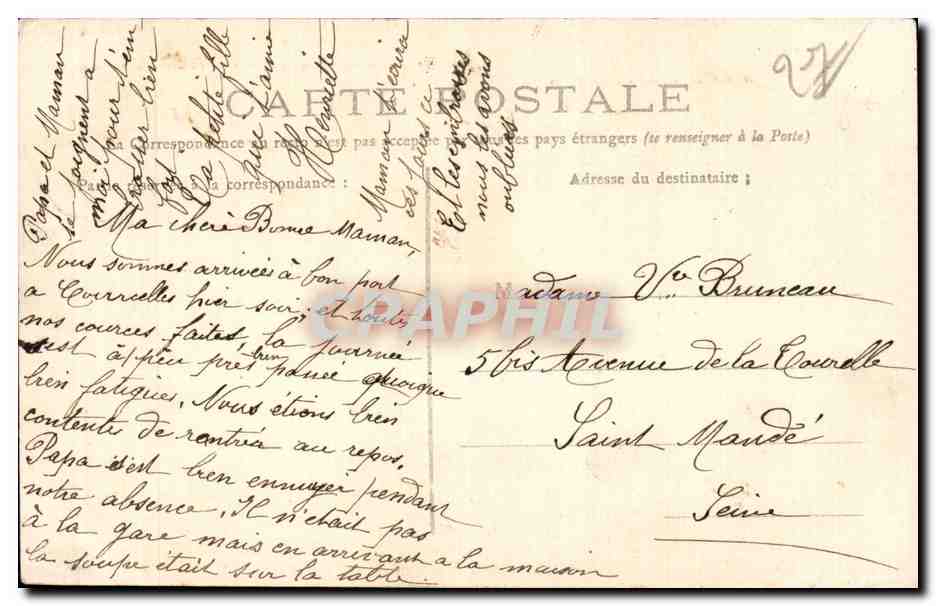 CARTE POSTALE
La Correspondance au recto n'est pas acceptée par tous les pays étrangers (se renseigner à la Poste)
Partie réservée à la correspondance :
Adresse du destinataire ;
Ma chère Bonne Maman,
Nous sommes arrivées à bon port
a Courcelles hier soir, et toutes
nos cources faites, la journée
s'est à peu près bien passée quoique
bien fatigues. Nous étions bien
contentes de rentrer au repos.
Papa s'est bien ennuyer pendant
notre absence. Il n'était pas
à la gare mais en arrivant a la maison
la soupe était sur la table.
Papa et Maman
se joignent à
moi pour t'em
brasser bien
fort
Ta petite fille
qui t'aime
Henriette
Maman écrira
ces jours ci
Et les
nous les avons
oubliées
Madame Vve Bruneau
5 bis Avenue de la Tourelle
Saint Mandé
Seine
CPAPHIL